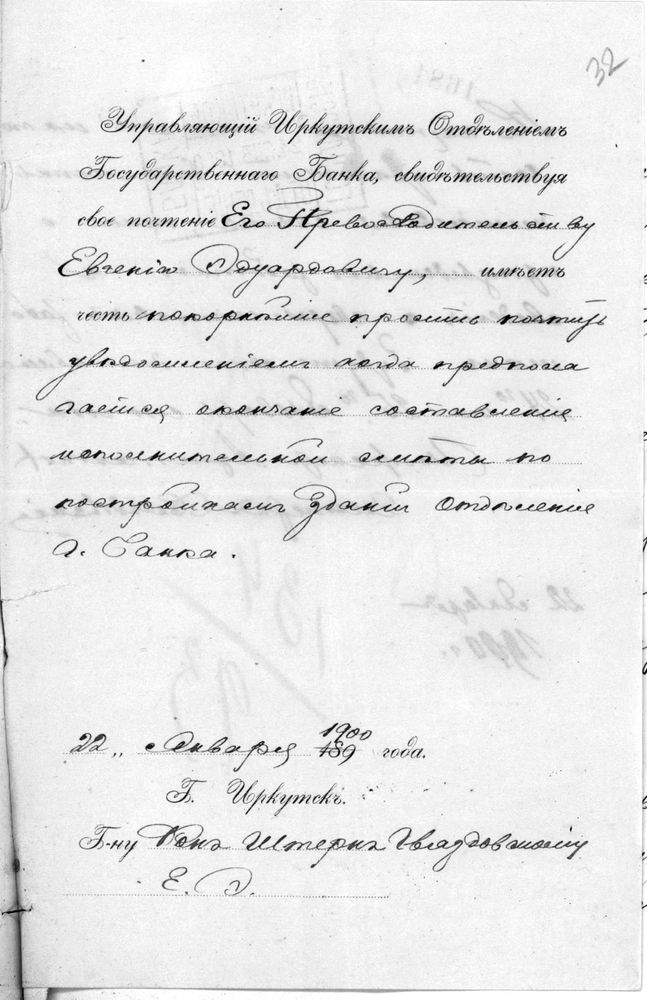 32
Управляющій Иркутскимъ Отдѣленіемъ
Государственнаго Банка, свидѣтельствуя
свое почтеніе Его Превосходительству
Евгенію Эдуардовичу, имѣетъ
честь покорнѣйше просить почтить
увѣдомленіемъ когда предпола
гается окончаніе составленія
исполнительной смѣты по
постройкамъ зданій Отдѣленія
Г. Банка.
22 „ Января 1900
189 года.
Г. Иркутскъ.
Г-ну Фонъ Штернъ Гвяздовскому
Е. Э.